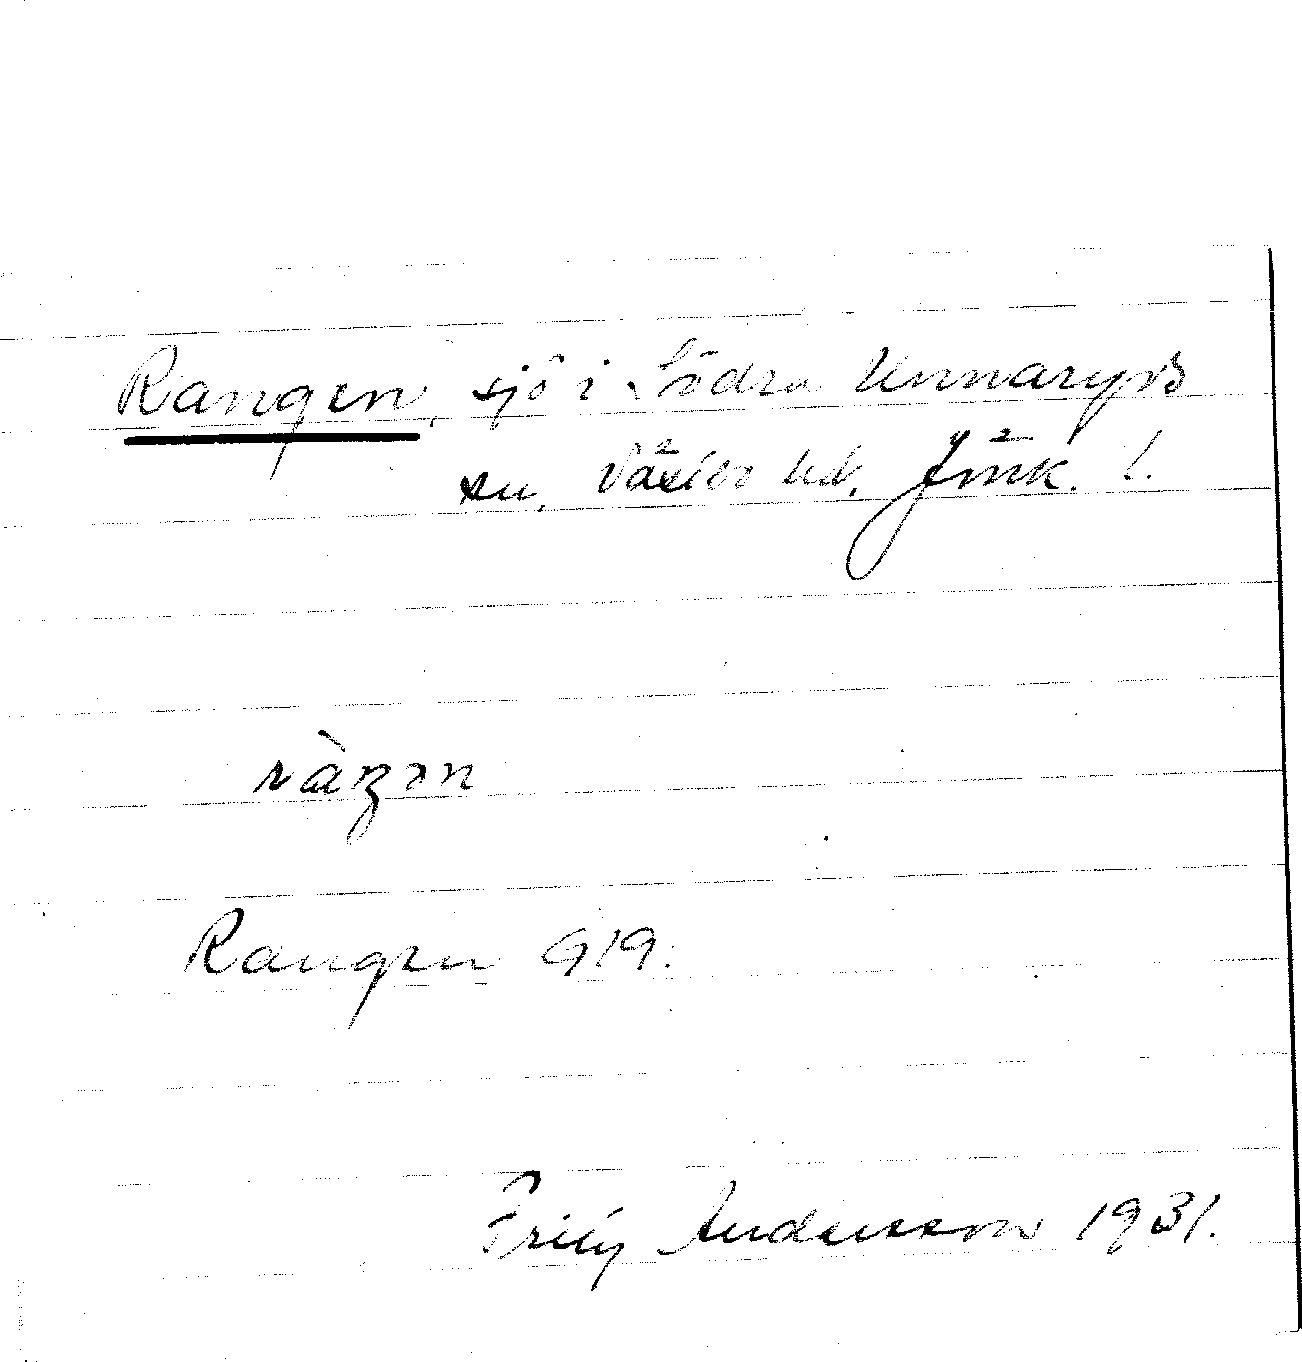 Rangen, sjö i Södra Unnaryds
sn, Västbo hd, Jönk. l.
ràŋən
Rangen G19.
Andersson 1931.